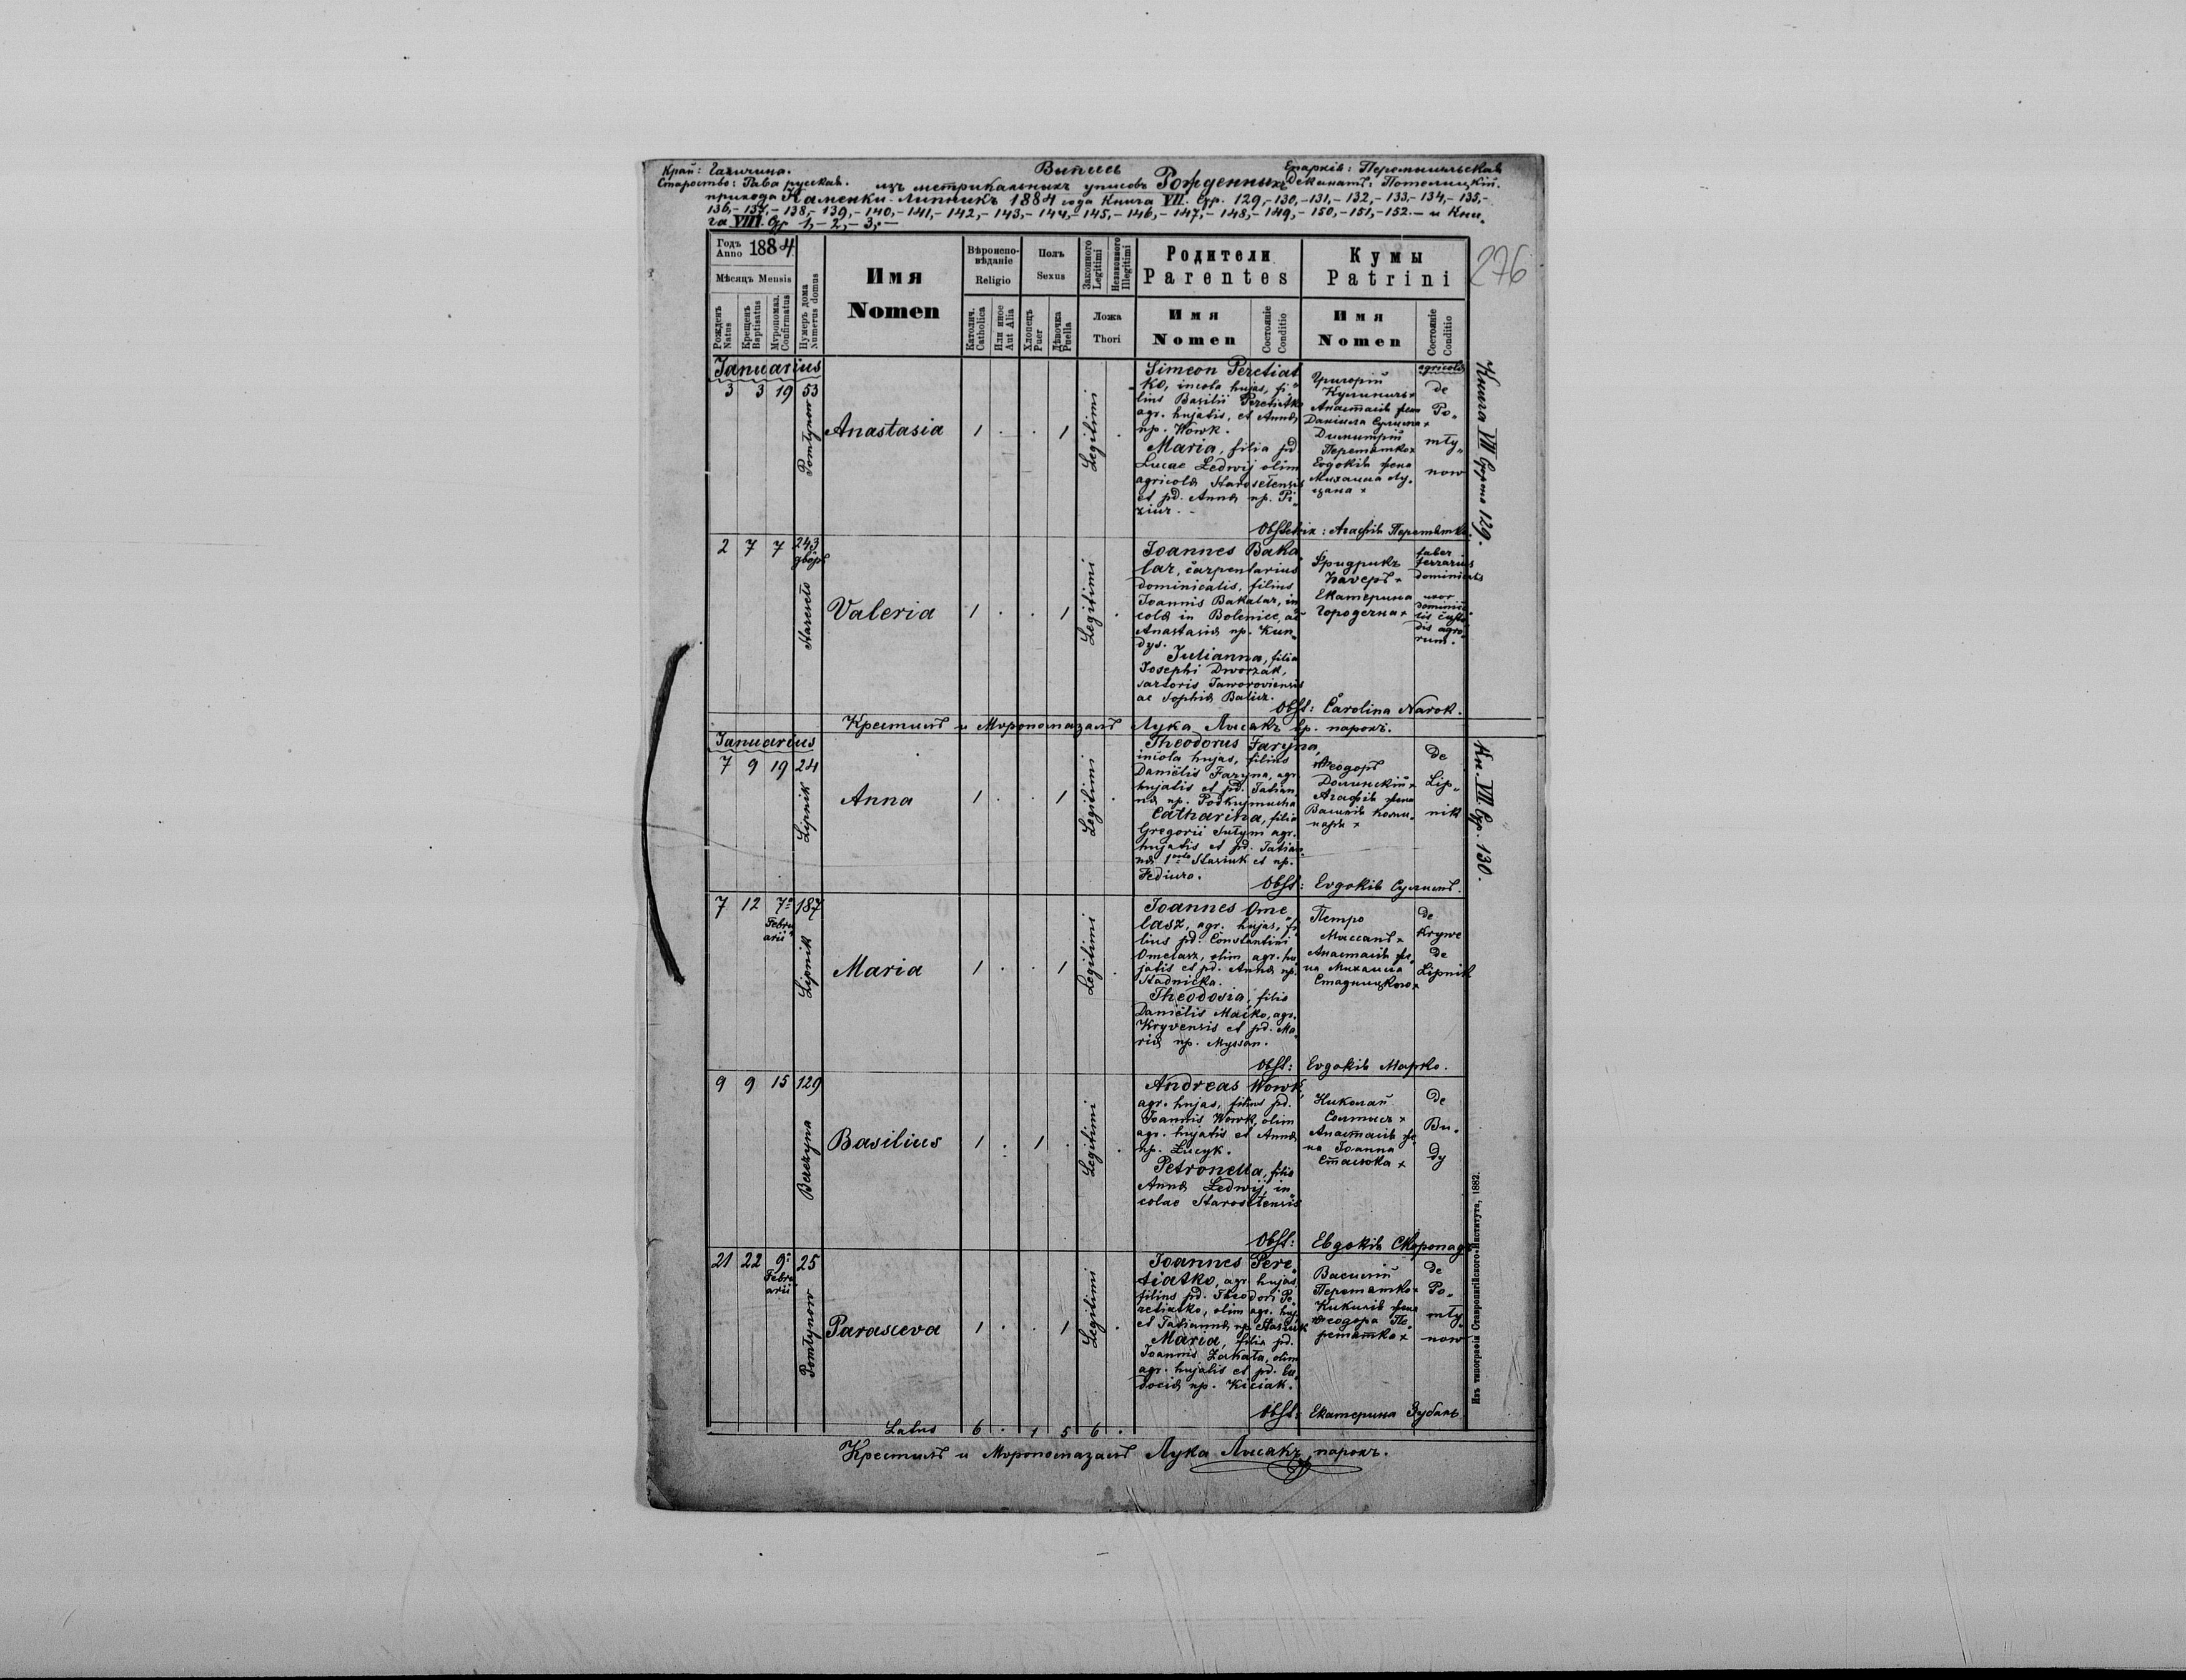 Край: Галичина. Выпись Епархія: Перемышльская
Староство: Рава руская. изъ метрикальныхъ уписовъ Рожденныхъ Деканатъ: Потелицкій.
прихода Каменки-Липникъ 1884 года Книга VII. Стр. 129,-130,-131,-132,-133,-134,-135,-
136,-137,-138,-139,-140,-141,-142,-143,-144,-145,-146,-147,-148,-149,-150,-151,-152.- и Кни.
га VIII. Стр 1,-2,-3,-
276
Годъ Anno 1884
Мѣсяцъ Mensis
Рожденъ Natus
Крещенъ Baptisatus
Мѵропомаз. Confirmatus
Нумеръ дома Numerus domus
Имя
Nomen
Вѣроиспо-
вѣданіе
Religio
Католич. Catholica
Или иное Aut Alia
Полъ
Sexus
Хлопецъ Puer
Дѣвочка Puella
Законного Legitimi
Незаконного Illegitimi
Ложа
Thori
Родители
Parentes
Имя
Nomen
Состояніе Conditio
Кумы
Patrini
Имя
Nomen
Состояніе Conditio
Januarius
3 3 19 53
Pomłynow
Anastasia
1 . . 1
Legitimi
Simeon Peretiat
ko, incola hujas, fi
lius Basilii Peretiatko
agr. hujatis, et Annæ
np. Wowk.
Maria, filia pd
Lucae Ledwij olim
agricolæ Starosełensis
et pd. Annæ np. Pi
ziur.
Григорій
Анастасія жена
Даніила
Димитрій
Перетятко x
Евдокія жена
Михаила Лу,
agricolæ
de
Po„
mły„
now
Obstetrix: Агафія Перетятко.
Книга VII Стрто 129.
2 7 7 243
дворъ
Stareseło
Valeria
1 . . 1
Legitimi
Joannes Baka
lar, carpentarius
dominicalis, filius
Joannis Bakalar, in
colæ in Boleniec, ac
Anastasiæ np. Kun„
dys.
Julianna, filia
Josephi Dworzak,
sartoris Jaworoviensis
ac Sophiæ Balicz.
Фридрикъ
Екатерина
faber
ferrarius
dominicalis
uxor
dominica
lis custo
dis agro„
rum.
Obst: Carolina Narok.
Крестилъ и Мѵропомазалъ Лука Лысакъ гр. парохъ.
Januarius
7 9 19 24
Lipnik
Anna
1 . . 1
Legitimi
Theodorus Faryna,
incola hujas, filius
Daniëlis Faryna, agr
hujatis et pd. Tatian„
næ np. Podkujmucha
Catharina, filia
Gregorii Sułym agr.
hujatis et pd. Tatian„
næ 1voto Stasiuk et np.
Fediura.
Ѳеодоръ
Долинскій x
Агафія жена
Василія
de
Lip„
nik
Obst: Евдокія Сулимъ.
Кн. VII. Стр. 130.
7 12 7ª 187
Febru
arii
Lipnik
Maria
1 . . 1
Legitimi
Joannes Ome„
lasz, agr. hujas, fi
lius pd. Constantini
Omelasz, olim agr. hu
jatis et pd. Annæ np.
Stadnicka.
Theodosia, filia
Daniëlis Maćko, agr.
Kryvensis et pd. Ma
riæ np. Myssan.
Петро
Миссанъ x
Анастасія же„
на Михаила
Стадницкого x
de
Krywe
de
Lipnik
Obst: Евдокія Марко.
9 9 15 129
Berezyna
Basilius
1 . 1 .
Legitimi
Andreas Wowk
agr. hujas, filius pd.
Joannis Wowk, olim
agr. hujatis et Annæ
np. Łucyk.
Petronella, filia
Annæ Ledwij, in
colae Starosełensis
Николай
Анастасія же
на Іоанна
Стасюка x
de
Bu„
dy
Obst: Евдокія Скоропадъ
21 22 9ª 25
Febru
arii
Pomłynow
Parasceva
1 . . 1
Legitimi
Joannes Pere„
tiatko, agr. hujas
filius pd. Theodori Pe„
retiatko, olim agr. huj.
et Tatiannæ np. Stasiuk
Maria, filia pd.
Joannis Zakała, olim
agr. hujatis et pd. Eu„
dociæ np. Kiciak.
Василій
Перетятко x
Кикилія жена
Ѳеодора Пе„
ретятка x
de
Po„
mły„
now
Obst: Екатерина Зубаль
Latus 6 . 1 5 6 .
Крестилъ и Мѵропомазалъ Лука Лысакъ, парохъ.
Изъ типографіи Ставропигійского Института, 1882.